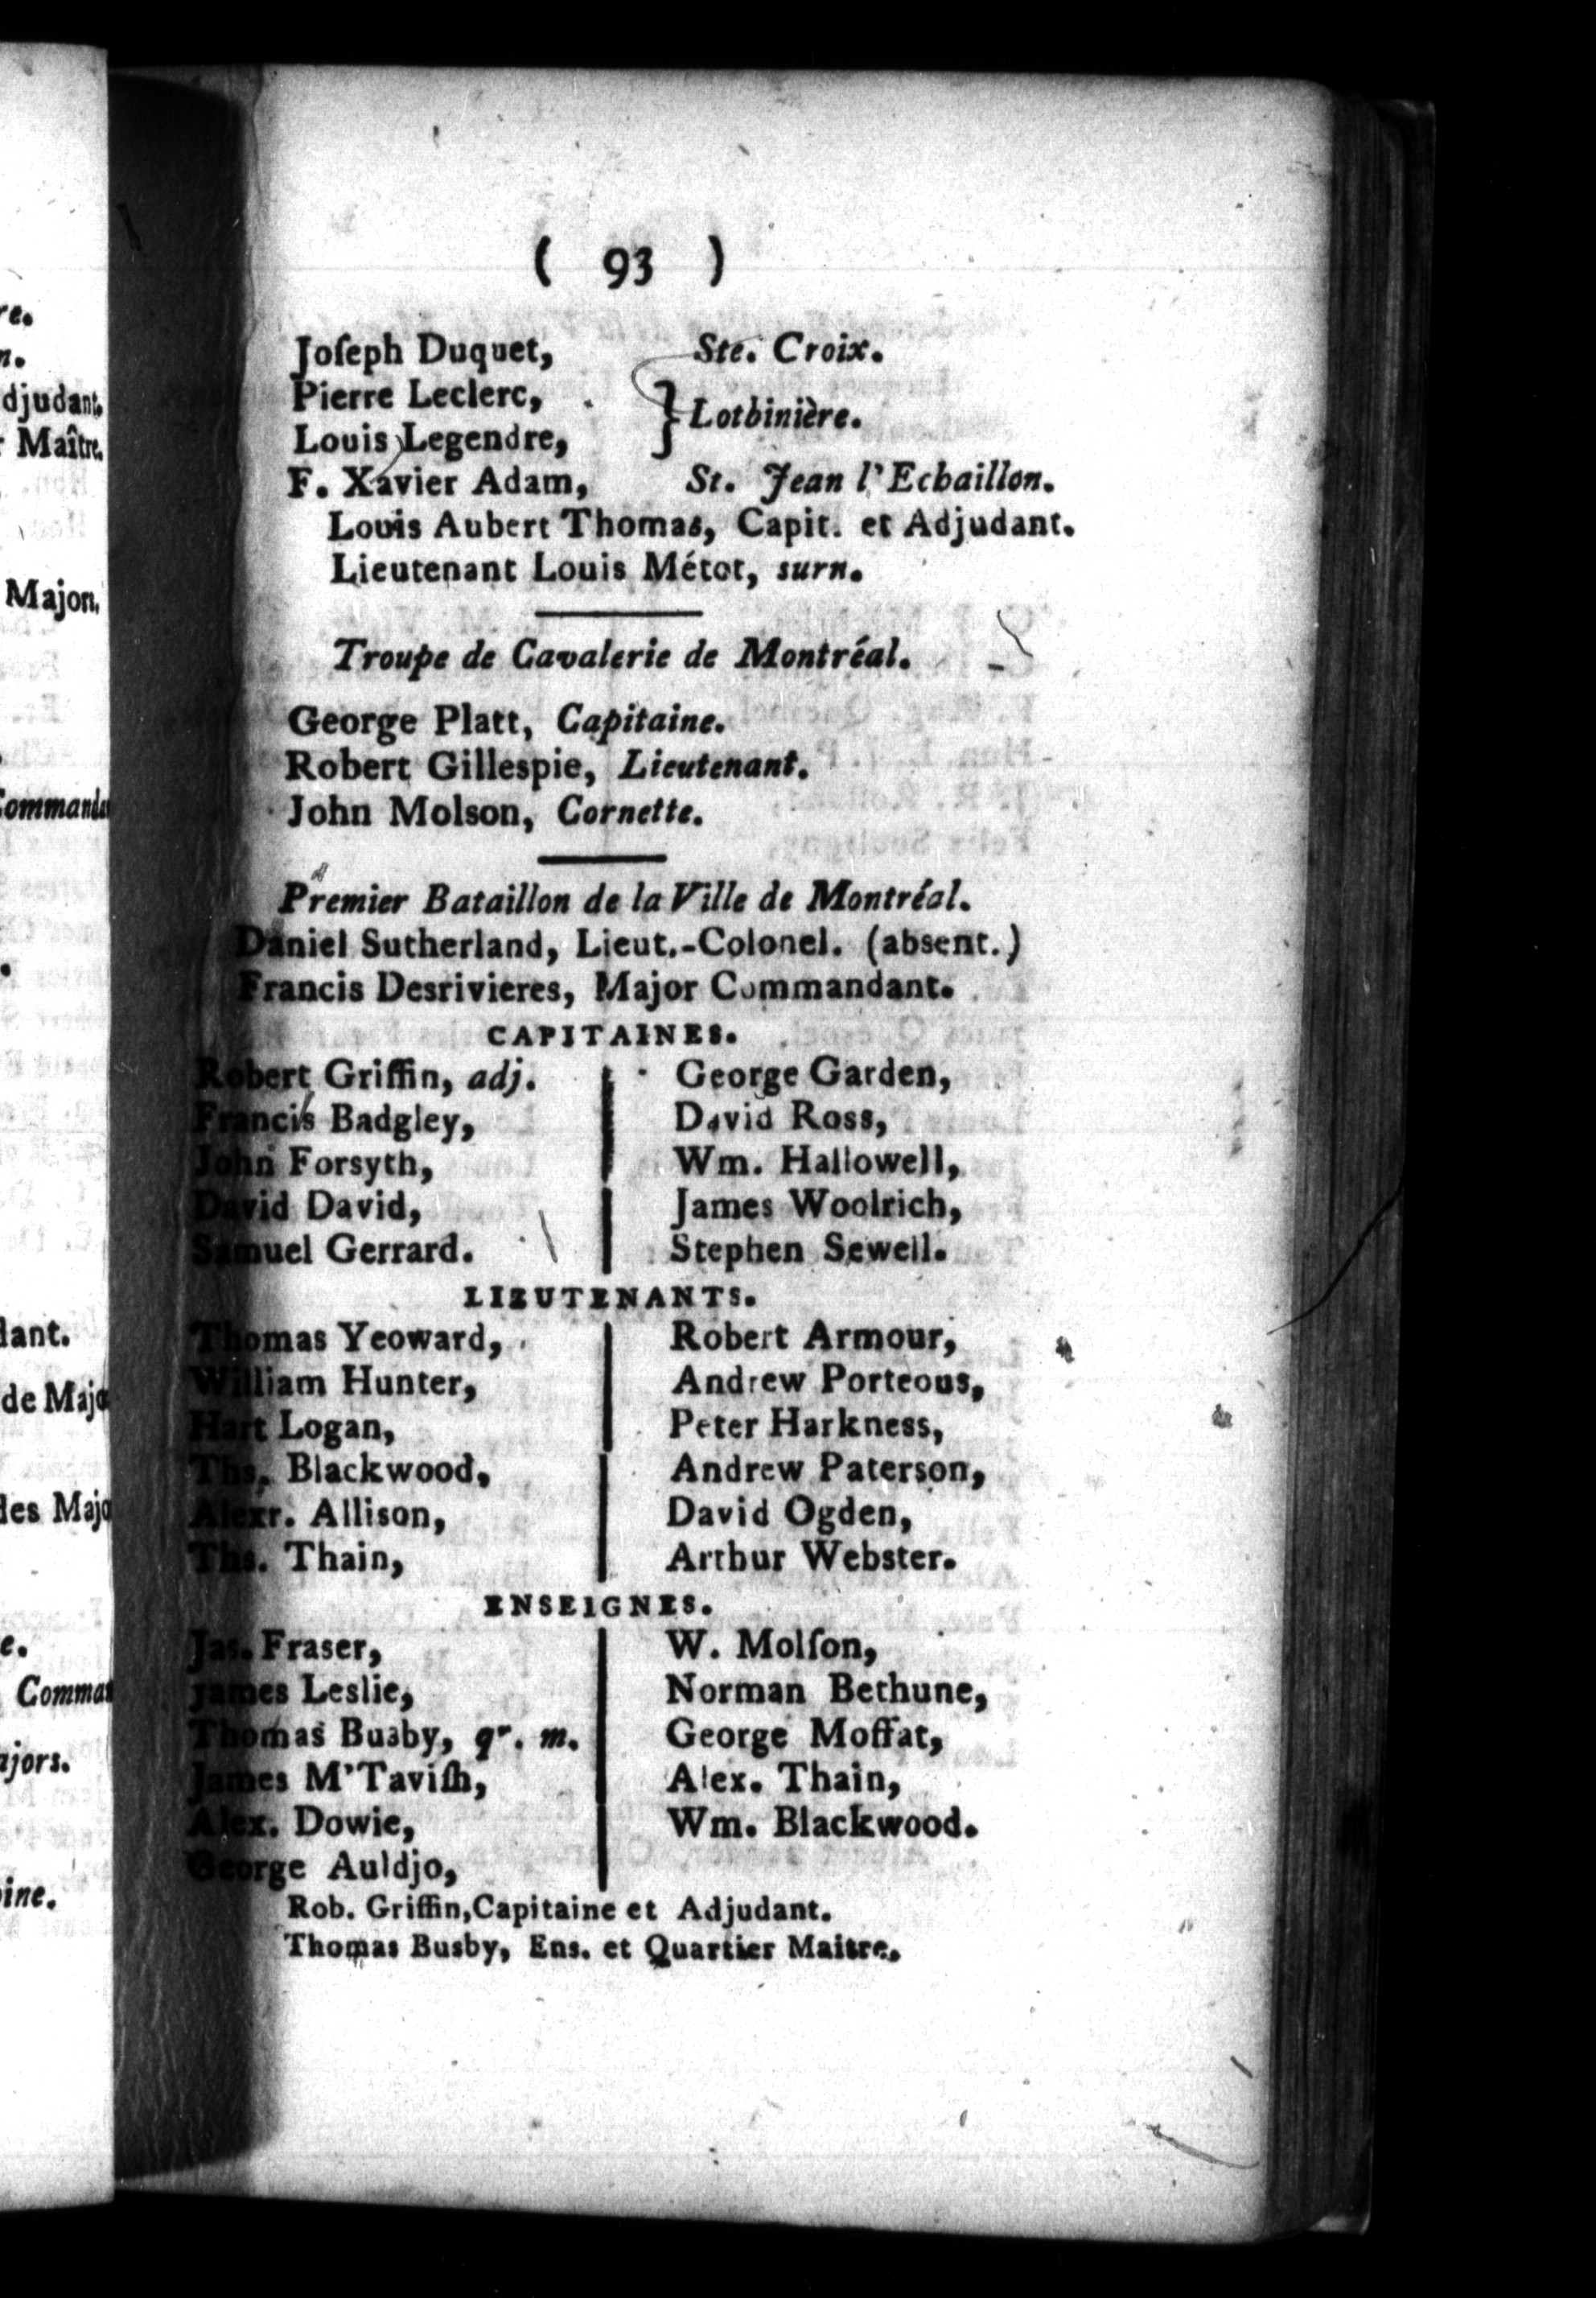 ( 93 )
Joſeph Duquet, Ste. Croix.
Pierre Leclerc,
Louis Legendre, } Lotbinière.
F. Xavier Adam, St. Jean l'Echaillon.
Louis Aubert Thomas, Capit. et Adjudant.
Lieutenant Louis Métot, surn.
Troupe de Cavalerie de Montréal.
George Platt, Capitaine.
Robert Gillespie, Lieutenant.
John Molson, Cornette.
Premier Bataillon de la Ville de Montréal.
Daniel Sutherland, Lieut.-Colonel. (absent.)
Francis Desrivieres, Major Commandant.
CAPITAINES.
Robert Griffin, adj.
Francis Badgley,
John Forsyth,
David David,
Samuel Gerrard.
George Garden,
David Ross,
Wm. Hallowell,
James Woolrich,
Stephen Sewell.
LIEUTENANTS.
Thomas Yeoward,
William Hunter,
Hart Logan,
Ths. Blackwood,
Alexr. Allison,
Ths. Thain,
Robert Armour,
Andrew Porteous,
Peter Harkness,
Andrew Paterson,
David Ogden,
Arthur Webster.
ENSEIGNES.
Jas. Fraser,
James Leslie,
Thomas Busby, qr. m.
James M'Taviſh,
Alex. Dowie,
George Auldjo,
W. Molſon,
Norman Bethune,
George Moffat,
Alex. Thain,
Wm. Blackwood.
Rob. Griffin, Capitaine et Adjudant.
Thomas Busby, Ens. et Quartier Maitre.